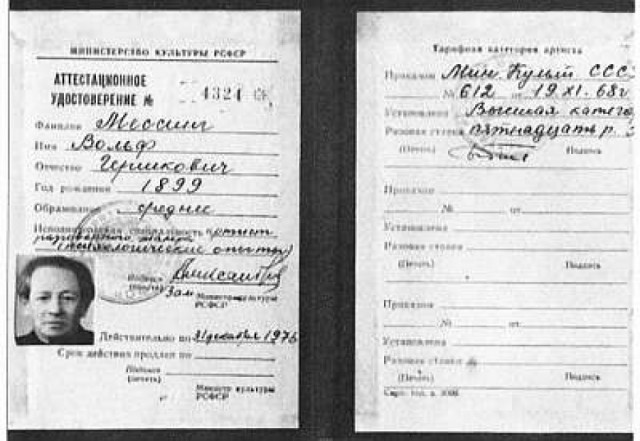 МИНИСТЕРСТВО КУЛЬТУРЫ РСФСР
АТТЕСТАЦИОННОЕ
УДОСТОВЕРЕНИЕ № 4324
Фамилия Мессинг
Имя Вольф
Отчество Гершикович
Год рождения 1899
Образование среднее
Исполнительская специальность (артист
разговорного жанра
(психологические опыты)
Подпись
(печать) Зам Министр культуры
РСФСР
Действительно по 31 декабря 1976
Срок действия продлен по
Подпись
(печать)
Министр культуры
РСФСР
Тарифная категория артиста
Приказом Мин. Культ СССР
№ 612 от 19.XI.68г.
Установлена Высшая катего
Разовая ставка пятнадцать р.
(Печать) Подпись
Приказом
№ от
Установлена
Разовая ставка
(Печать) Подпись
Приказом
№ от
Установлена
Разовая ставка
(Печать) Подпись